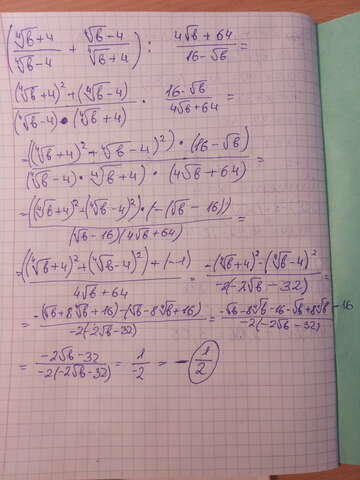 (⁴√b+4 / ⁴√b-4 + ⁴√b-4 / ⁴√b+4) : 4√b+64 / 16-√b =
(⁴√b+4)²+(⁴√b-4) / (⁴√b-4)·(⁴√b+4) · 16-√b / 4√b+64 =
=((⁴√b+4)²+⁴√b-4)²)·(16-√b) / (⁴√b-4)·⁴√b+4)·(4√b+64) =
=((⁴√b+4)²+(⁴√b-4)²)·(-(√b-16)) / (√b-16)(4√b+64) =
=((⁴√b+4)²+(⁴√b-4)²)·(-1) / 4√b+64 = -(⁴√b+4)²-(⁴√b-4)² / -2(-2√b-32) =
= -(√b+8⁴√b+16)-(√b-8⁴√b+16) / -2(-2√b-32) = -√b-8⁴√b-16-√b+8⁴√b-16 / -2(-2√b-32)
= -2√b-32 / -2(-2√b-32) = 1 / -2 = - 1/2